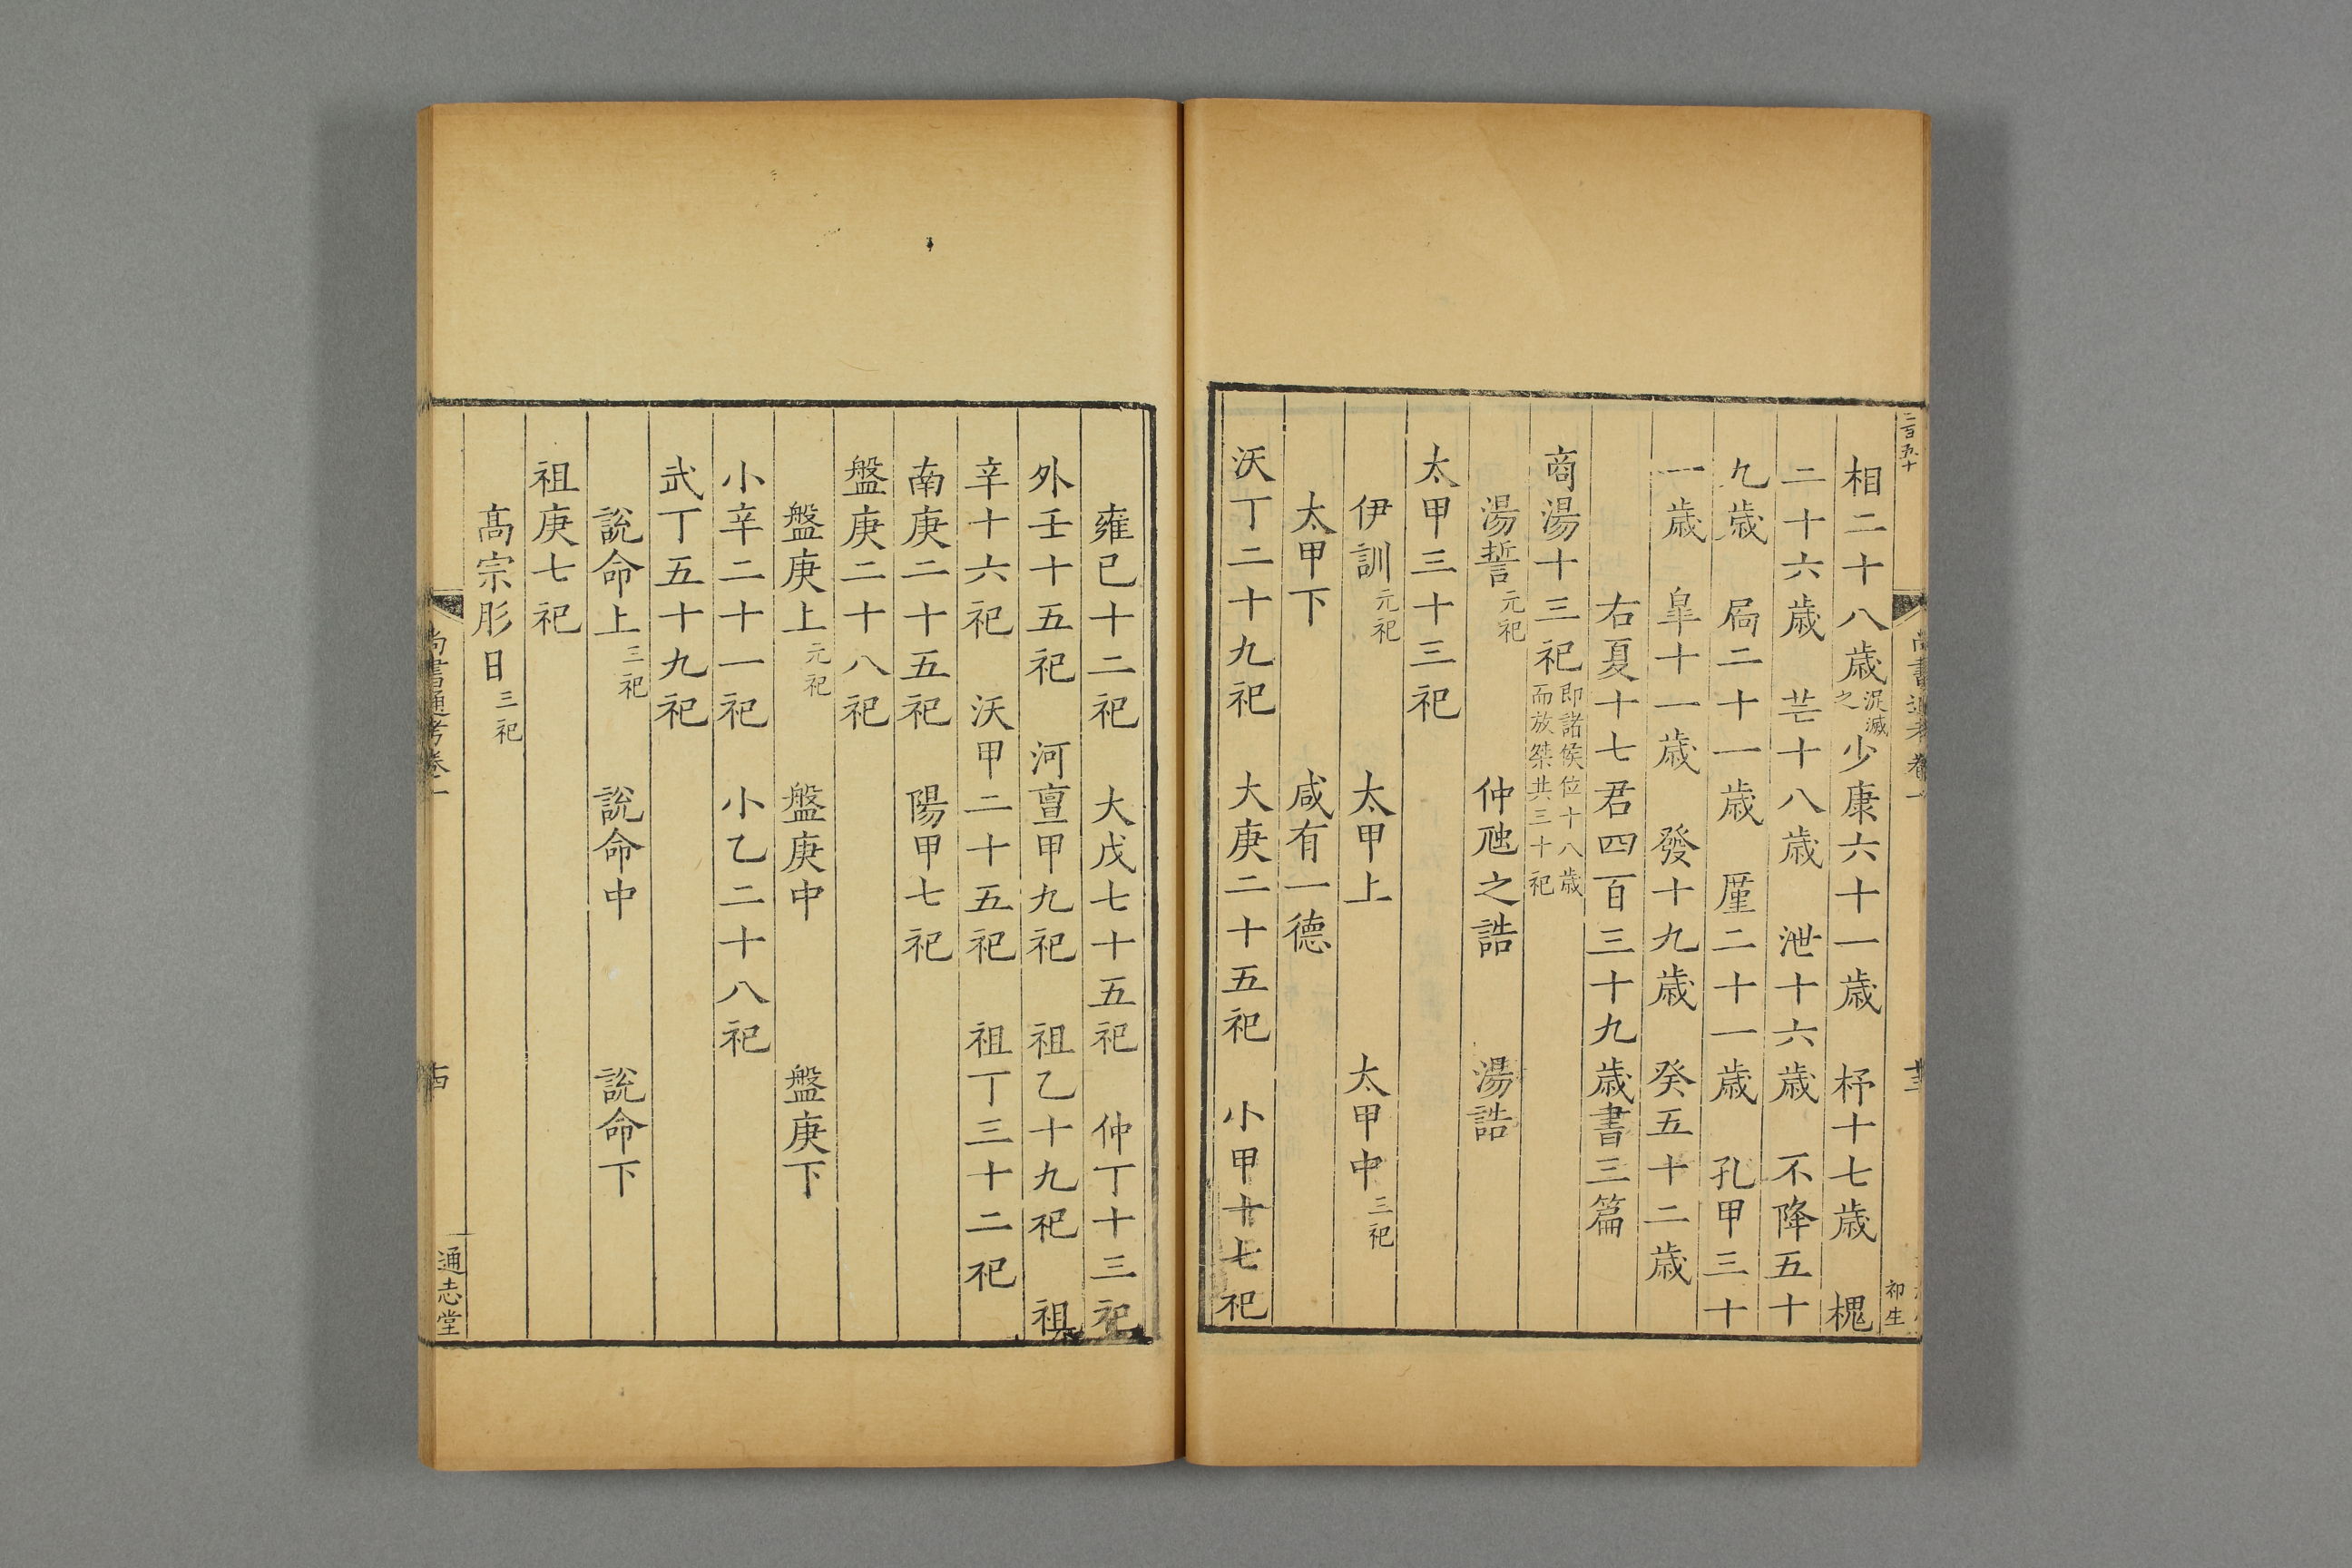 二百五十
尚書通考卷一
十三
初生
相二十八歲浞滅之少康六十一歲 杼十七歲 槐
二十六歲 芒十八歲 泄十六歲 不降五十
九歲 扃二十一歲 厪二十一歲 孔甲三十
一歲 皐十一歲 發十九歲 癸五十二歲
右夏十七君四百三十九歲書三篇
商湯十三祀即諸侯位十八歲而放桀共三十祀
湯誓元祀 仲虺之誥 湯誥
太甲三十三祀
伊訓元祀 太甲上 太甲中三祀
太甲下 咸有一德
沃丁二十九祀 大庚二十五祀 小甲十七祀
雍已十二祀 大戊七十五祀 仲丁十三祀
外壬十五祀 河亶甲九祀 祖乙十九祀 祖
辛十六祀 沃甲二十五祀 祖丁三十二祀
南庚二十五祀 陽甲七祀
盤庚二十八祀
盤庚上元祀 盤庚中 盤庚下
小辛二十一祀 小乙二十八祀
武丁五十九祀
說命上三祀 說命中 說命下
祖庚七祀
髙宗肜日三祀
尚書通考卷一
十四
通志堂